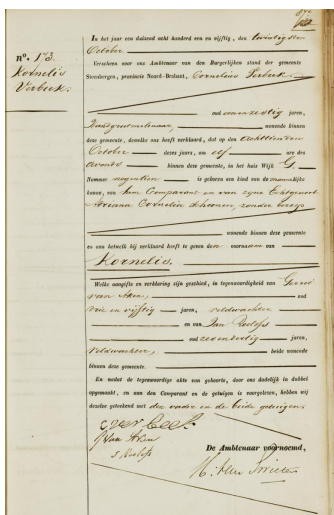 In het jaar een duizend acht honderd een en vijftig, den twintigsten
October
Verscheen voor ons Ambtenaar van den Burgerlijken stand der gemeente
Steenbergen, provincie Noord-Brabant, Cornelius Verbeek
N°. 173.
Kornelis
Verbeek.
oud jaren,
wonende binnen
deze gemeente, dewelke ons heeft verklaard, dat op den achttienden
October dezes jaars, om elf ure des
avonds binnen deze gemeente, in het huis Wijk G
Nommer negentien is geboren een kind van de mannelijke
kunne, van hem Comparant en van zijne Echtgenoot
Adriana Cornelia zonder beroep
wonende binnen deze gemeente
en aan hetwelk hij verklaard heeft te geven den voornaam van
Kornelis.
Welke aangifte en verklaring zijn geschied, in tegenwoordigheid van Gerrit
van Aken, oud
drie en vijftig jaren, veldwachter
en van Jan
oud zevenendertig jaren,
veldwachter, beide wonende
binnen deze gemeente.
En nadat de tegenwoordige akte van geboorte, door ons dadelijk in dubbel
opgemaakt, en aan den Comparant en de getuigen is voorgelezen, hebben wij
dezelve geteekend met den vader en de beide getuigen.
C verbeek
G van Aken
J
De Ambtenaar voornoemd,